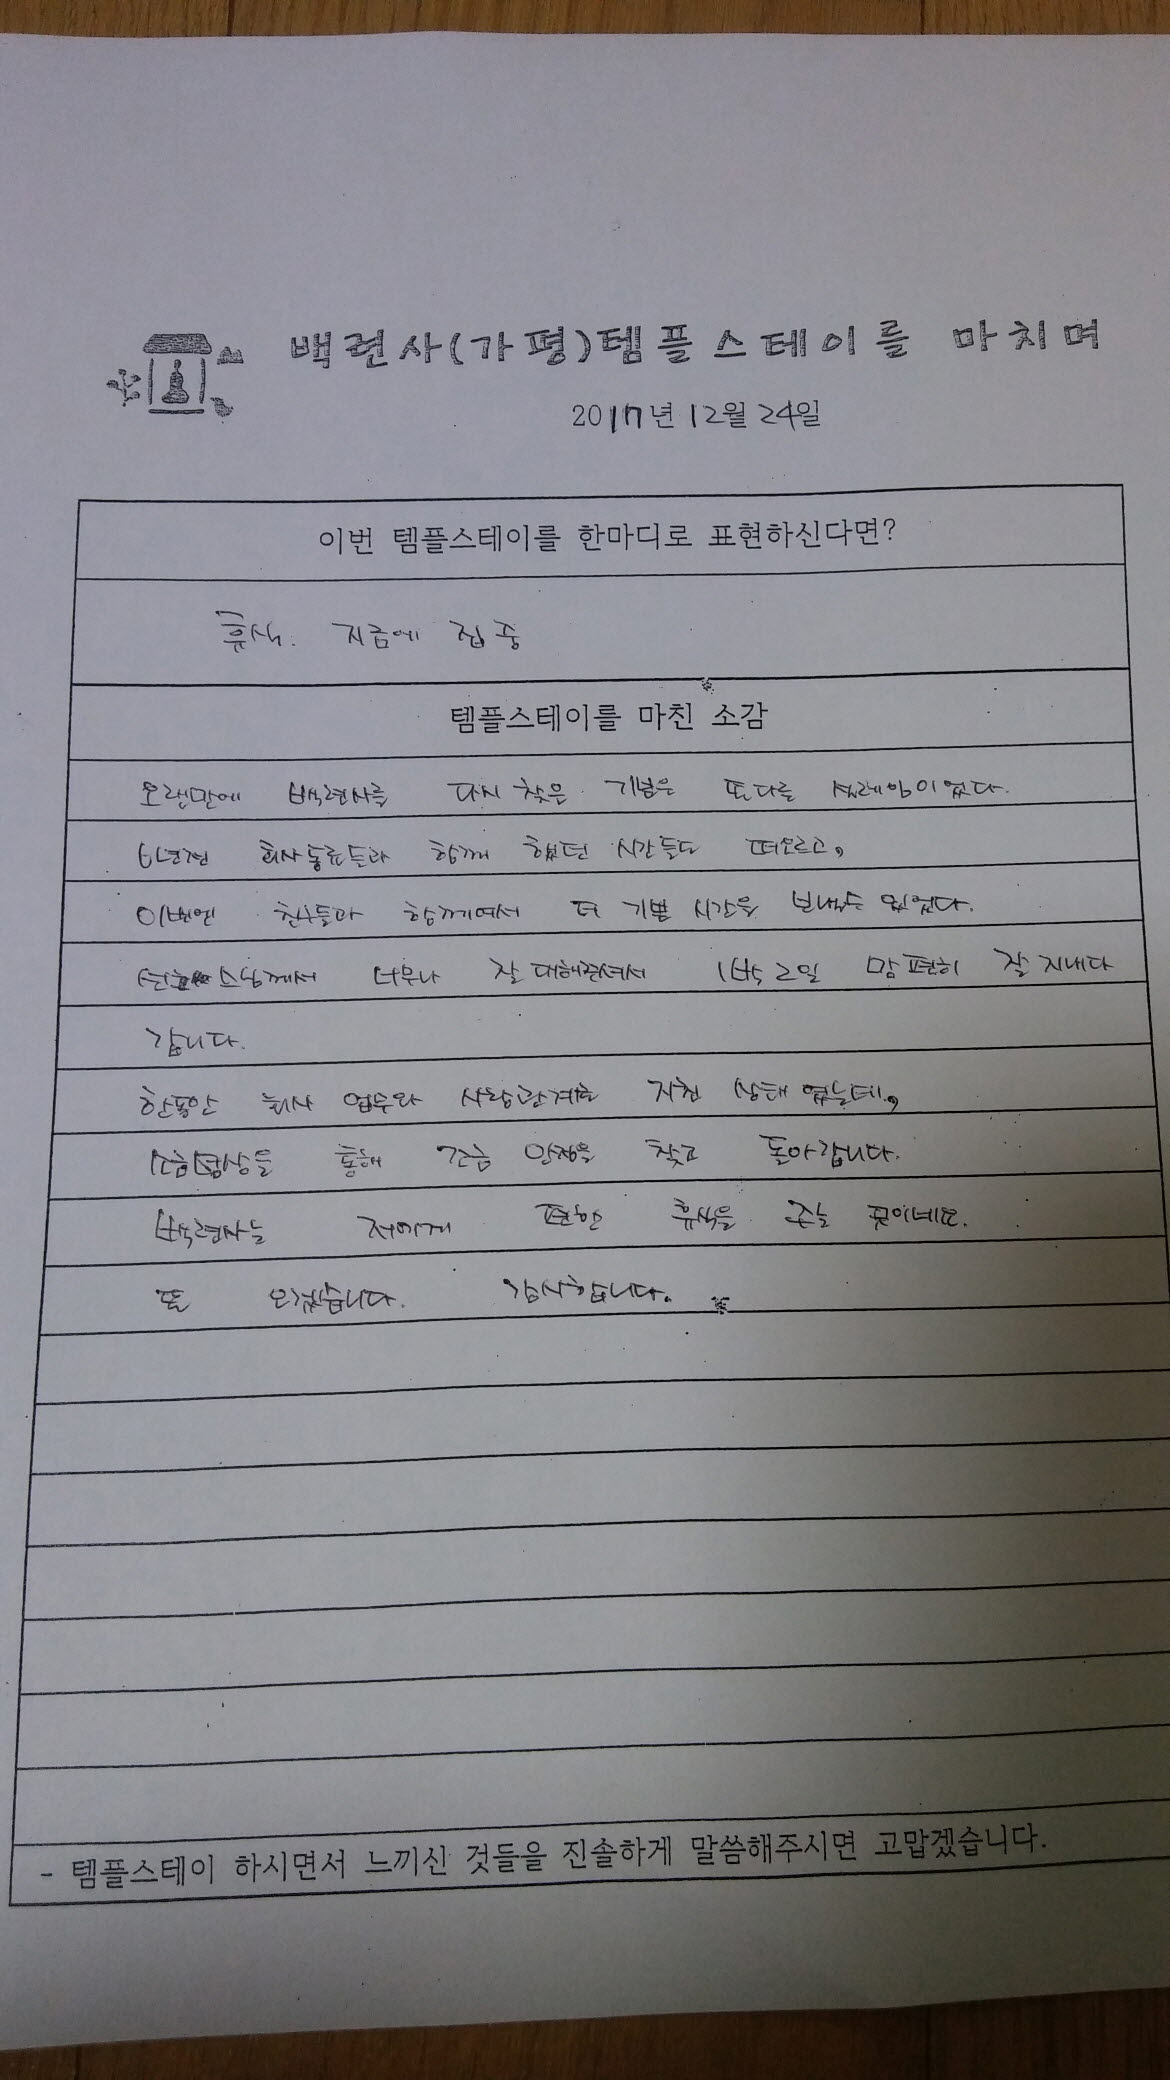 백련사(가평)템플스테이를 마치며
2017년 12월 24일
이번 템플스테이를 한마디로 표현하신다면?
휴식. 지금에 집중
템플스테이를 마친 소감
오랜만에 백련사를 다시 찾은 기분은 또다른 설레임이었다.
6년전 회사동료들과 함께 했던 시간들도 떠오르고,
이번엔 친구들과 함께여서 더 기쁜 시간을 보낼수 있었다.
스님께서 너무나 잘 대해주셔서 1박 2일 맘 편히 잘 지내다
갑니다.
한동안 회사 업무와 사람관계로 지친 상태 였는데,
통해 조금 안정을 찾고 돌아갑니다.
백련사는 저에게 편한 휴식을 주는 곳이네요.
또 오겠습니다. 감사합니다.
- 템플스테이 하시면서 느끼신 것들을 진솔하게 말씀해주시면 고맙겠습니다.